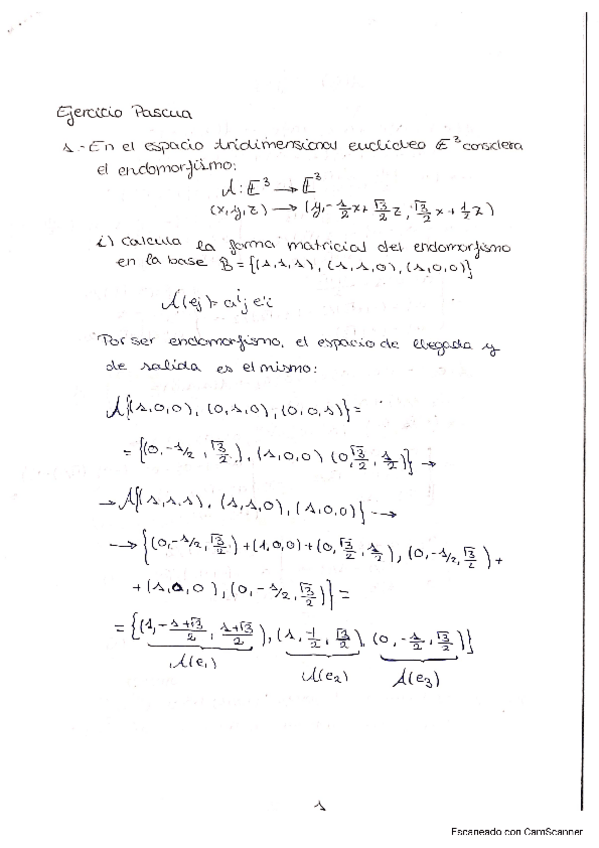 Ejercicio Pascua
1.- En el espacio tridimensional euclídeo E³ considera
el endomorfismo:
A: E³ → E³
(x, y, z) → (y, -1/2 x + √3/2 z, √3/2 x + 1/2 z)
i) Calcula la forma matricial del endomorfismo
en la base B = {(1,1,1), (1,1,0), (1,0,0)}
A(ej) = aⁱj e'i
Por ser endomorfismo, el espacio de llegada y
de salida es el mismo:
A{(1,0,0), (0,1,0), (0,0,1)} =
= {(0, -1/2, √3/2), (1,0,0) (0, √3/2, 1/2)} →
→ A{(1,1,1), (1,1,0), (1,0,0)} -→
-→ {(0, -1/2, √3/2) + (1,0,0) + (0, √3/2, 1/2), (0, -1/2, √3/2) +
+ (1,0,0), (0, -1/2, √3/2)} =
= {(1, -1+√3/2, 1+√3/2), (1, -1/2, √3/2), (0, -1/2, √3/2)}
A(e₁) A(e₂) A(e₃)
1
Escaneado con CamScanner